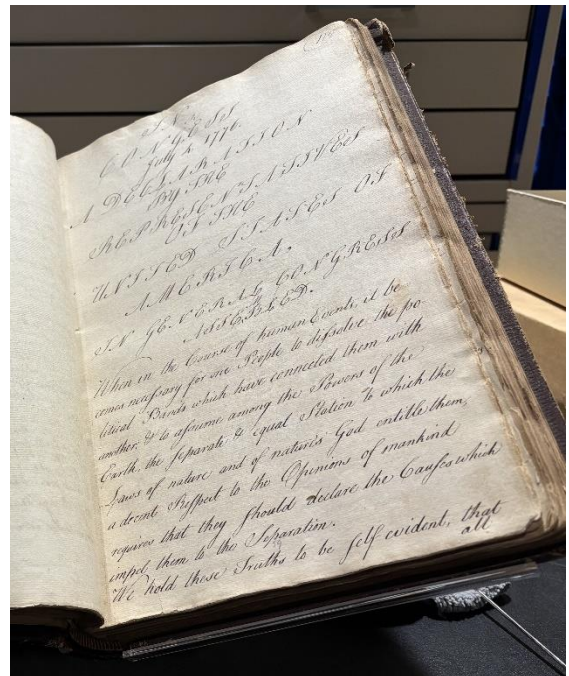 IN
CONGRESS
July 4. 1776.
A DECLARATION
BY THE
REPRESENTATIVES
ON THE
UNITED STATES OF
AMERICA.
IN GENERAL CONGRESS
ASSEBLED.
When in the Course of human Events, it be
comes necessary for one People to dissolve the po
litical Bands which have connected them with
another, & to assume among the Powers of the
Earth, the separate & equal Station to which the
Laws of nature and of nature's God entitle them,
a decent Respect to the Opinions of mankind
requires that they should declare the Causes which
impel them to the Separation.
We hold these Truths to be self evident, that
all